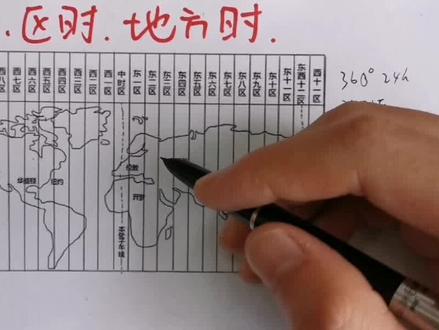 .区时.地方时.
360° 24h
西八区 西七区 西六区 西五区 西四区 西三区 西二区 西一区 中时区 东一区 东二区 东三区 东四区 东五区 东六区 东七区 东八区 东九区 东十区 东十一区 东西十二区 西十一区
伦敦
纽约
开罗
本初子午线